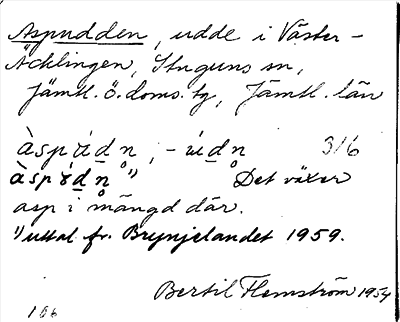 Aspudden, udde i Väster-
Näcklingen, Stuguns sn,
Jämtl. ö. doms. tg, Jämtl. län
àspúd̲n̥, -ùd̲n̥ 3/6
àspɤ́d̲n̥ ¹) Det växer
asp i mängd där.
¹) uttal fr. Brynjelandet 1959.
Bertil Flemström 1954
106